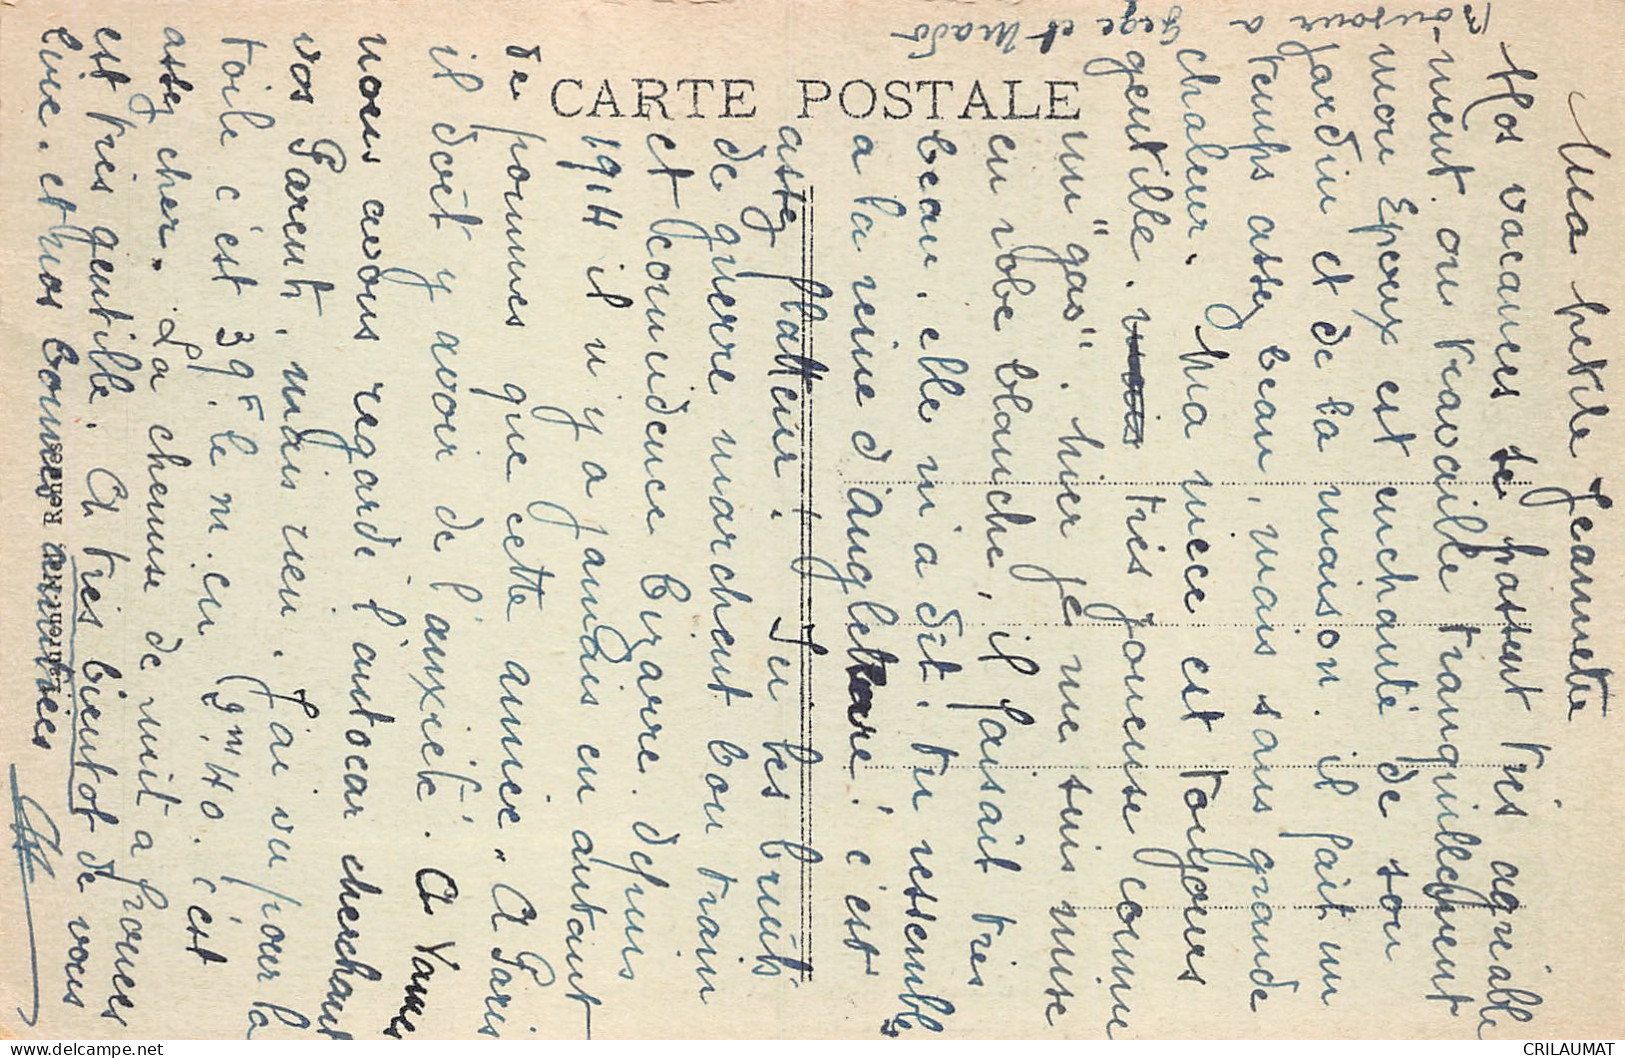 Ma petite Jeannette
Nos vacances se passent très agréable
-ment. on travaille tranquillement
mon Epoux est enchanté de son
jardin et de la maison. il fait un
temps assez beau, mais sans grande
chaleur. Ma nièce est toujours
gentille. très joueuse comme
un "gas". hier je me suis mise
en robe blanche, il faisait très
beau. elle m'a dit. tu ressembles
a la reine d'Angleterre! c'est
assez flatteur! Tu les bruits
de guerre marchent bon train
et coincidence bizarre. depuis
1914 il n'y a jamais eu autant
de pommes que cette année. A Paris
il doit y avoir de l'anxiété. A Vannes
nous avons regardé l'autocar cherchant
vos Parents, mais rien. J'ai vu pour la
toile c'est 39F le m. en 2m40. c'est
assez cher. La chemise de nuit a frounces
est très gentille. A très bientot de vous
lire. et nos bonnes amitiés
Bonsoir a
Gege et Mado
CARTE POSTALE